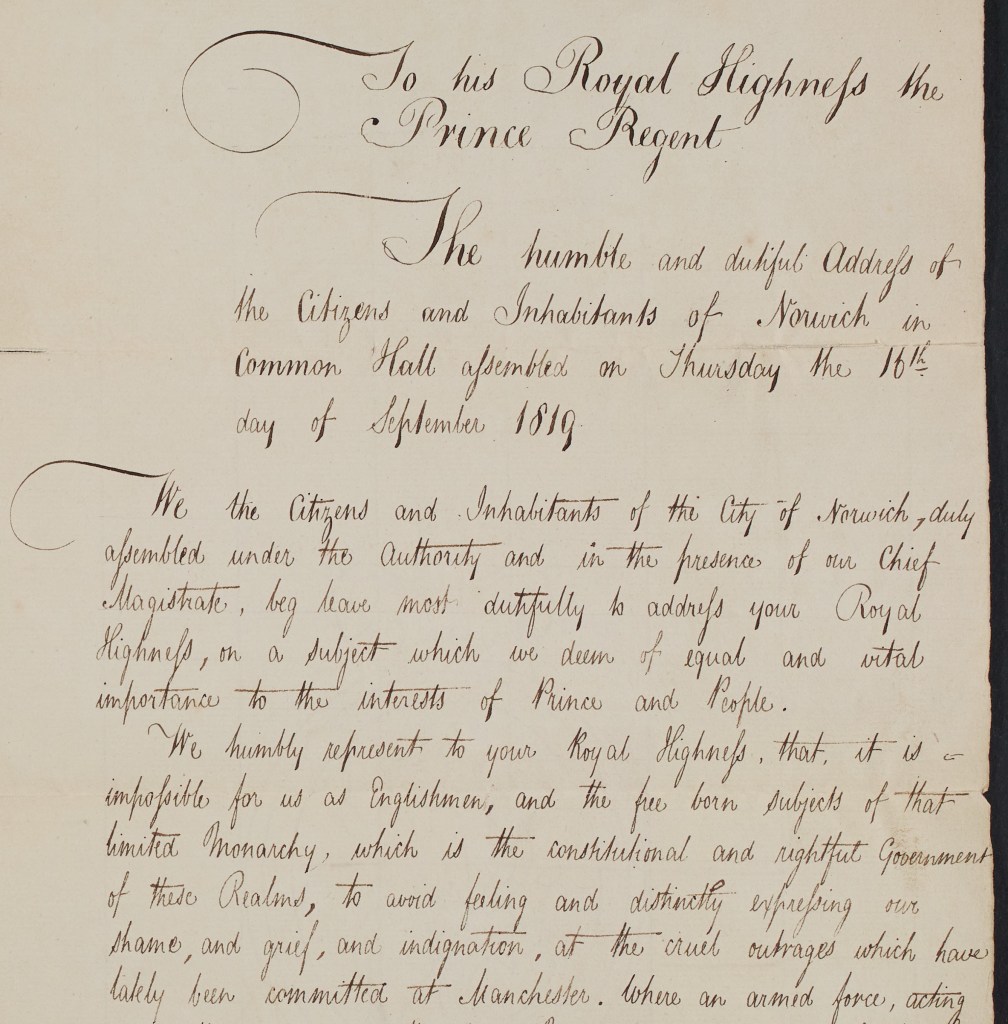 To his Royal Highneſs the
Prince Regent
The humble and dutiful Addreſs of
the Citizens and Inhabitants of Norwich in
Common Hall aſsembled on Thursday the 16th
day of September 1819
We the Citizens and Inhabitants of the City of Norwich, duly
aſsembled under the Authority and in the presence of our Chief
Magistrate, beg leave most dutifully to addreſs your Royal
Highneſs, on a subject which we deem of equal and vital
importance to the interests of Prince and People.
We humbly represent to your Royal Highneſs, that, it is
impoſsible for us as Englishmen, and the free born subjects of that
limited Monarchy, which is the constitutional and rightful Government
of these Realms, to avoid feeling and distinctly expreſsing our
shame, and grief, and indignation, at the cruel outrages which have
lately been committed at Manchester. Where an armed force, acting